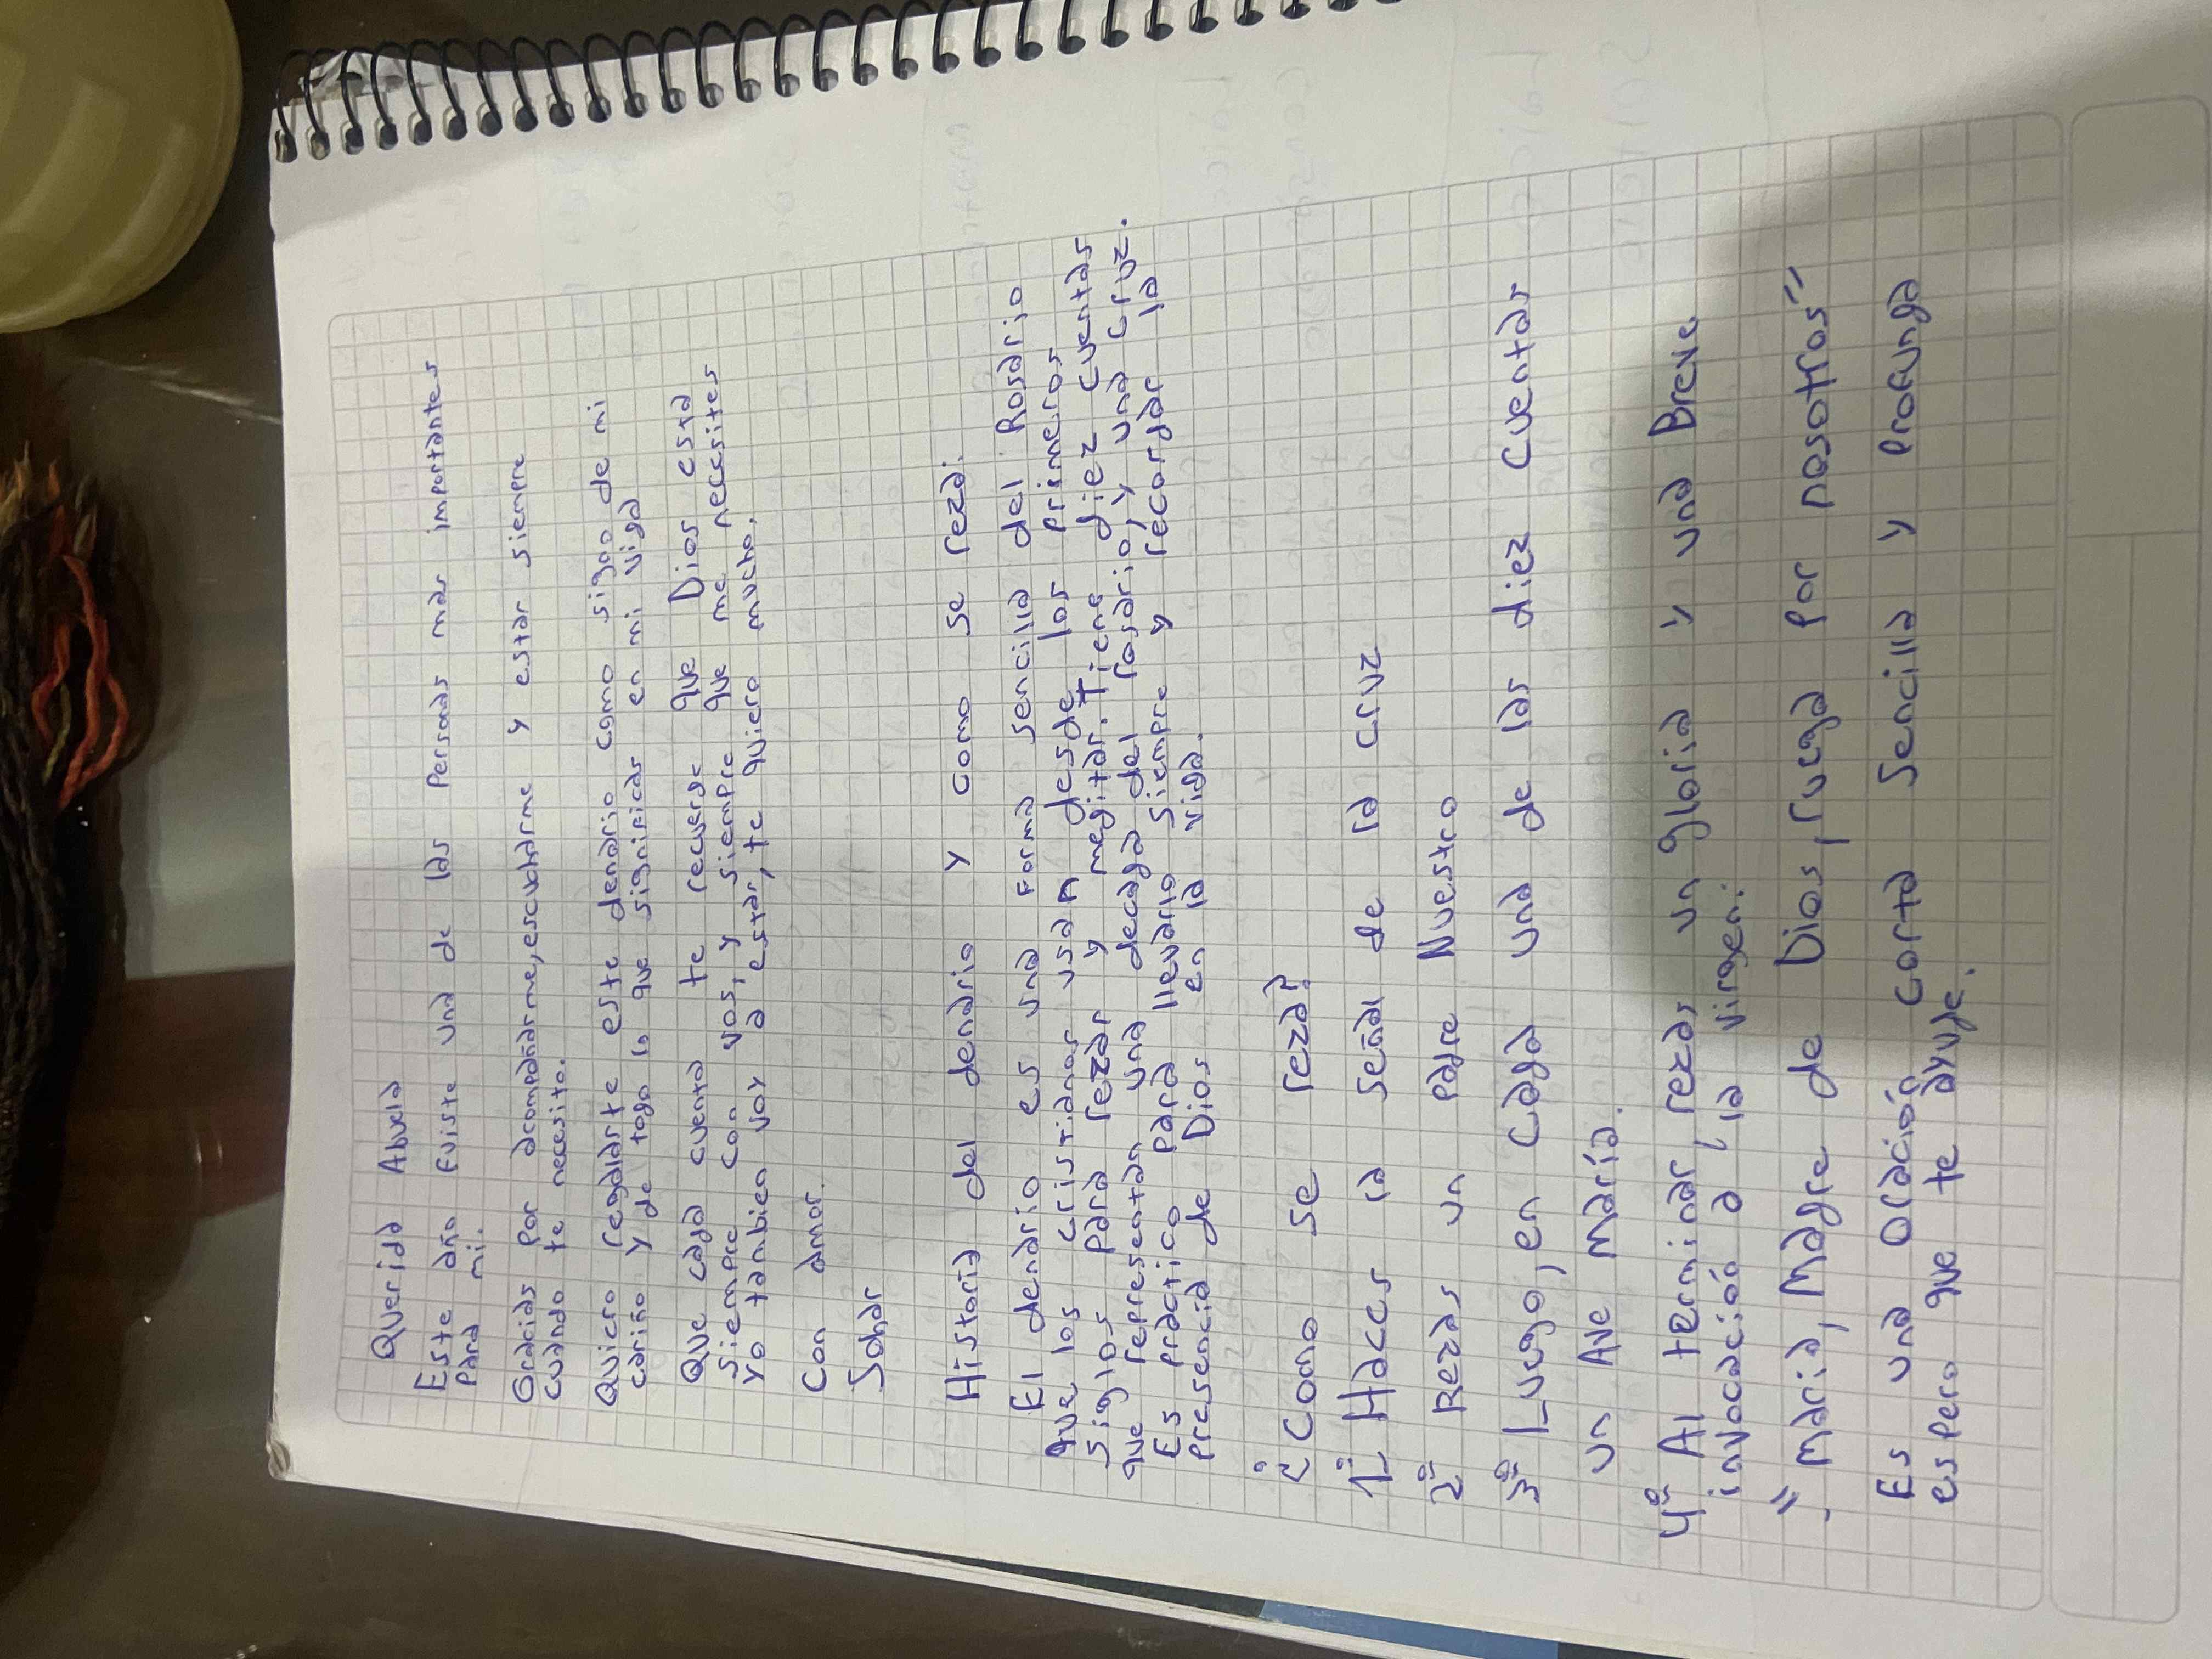 Querida Abuela
Este año fuiste una de las Personas mas importantes
Para mi.
Gracias por acompañarme, escucharme y estar siempre
cuando te necesito.
Quiero regalarte este denario como signo de mi
cariño y de todo lo que significas en mi vida
Que cada cuenta te recuerde que Dios esta
siempre con vos, y siempre que me necesites
yo tambien voy a estar, te quiero mucho.
Con amor.
Sohar
Historia del denario y como se reza:
El denario es una forma sencilla del Rosario
que los cristianos usan desde los primeros
siglos para rezar y meditar. Tiene diez cuentas
que representan una decada del rosario, y una cruz.
Es practico para llevarlo siempre y recordar la
presencia de Dios en la vida.
¿Como se reza?
1º Haces la señal de la cruz
2º Rezas un Padre Nuestro
3º Luego, en cada una de las diez cuentas
un Ave María.
4º Al terminar, rezas un gloria y una Breve
invocación a la Virgen:
"María, Madre de Dios, ruega por nosotros"
Es una Oración corta sencilla y profunda
espero que te ayude.